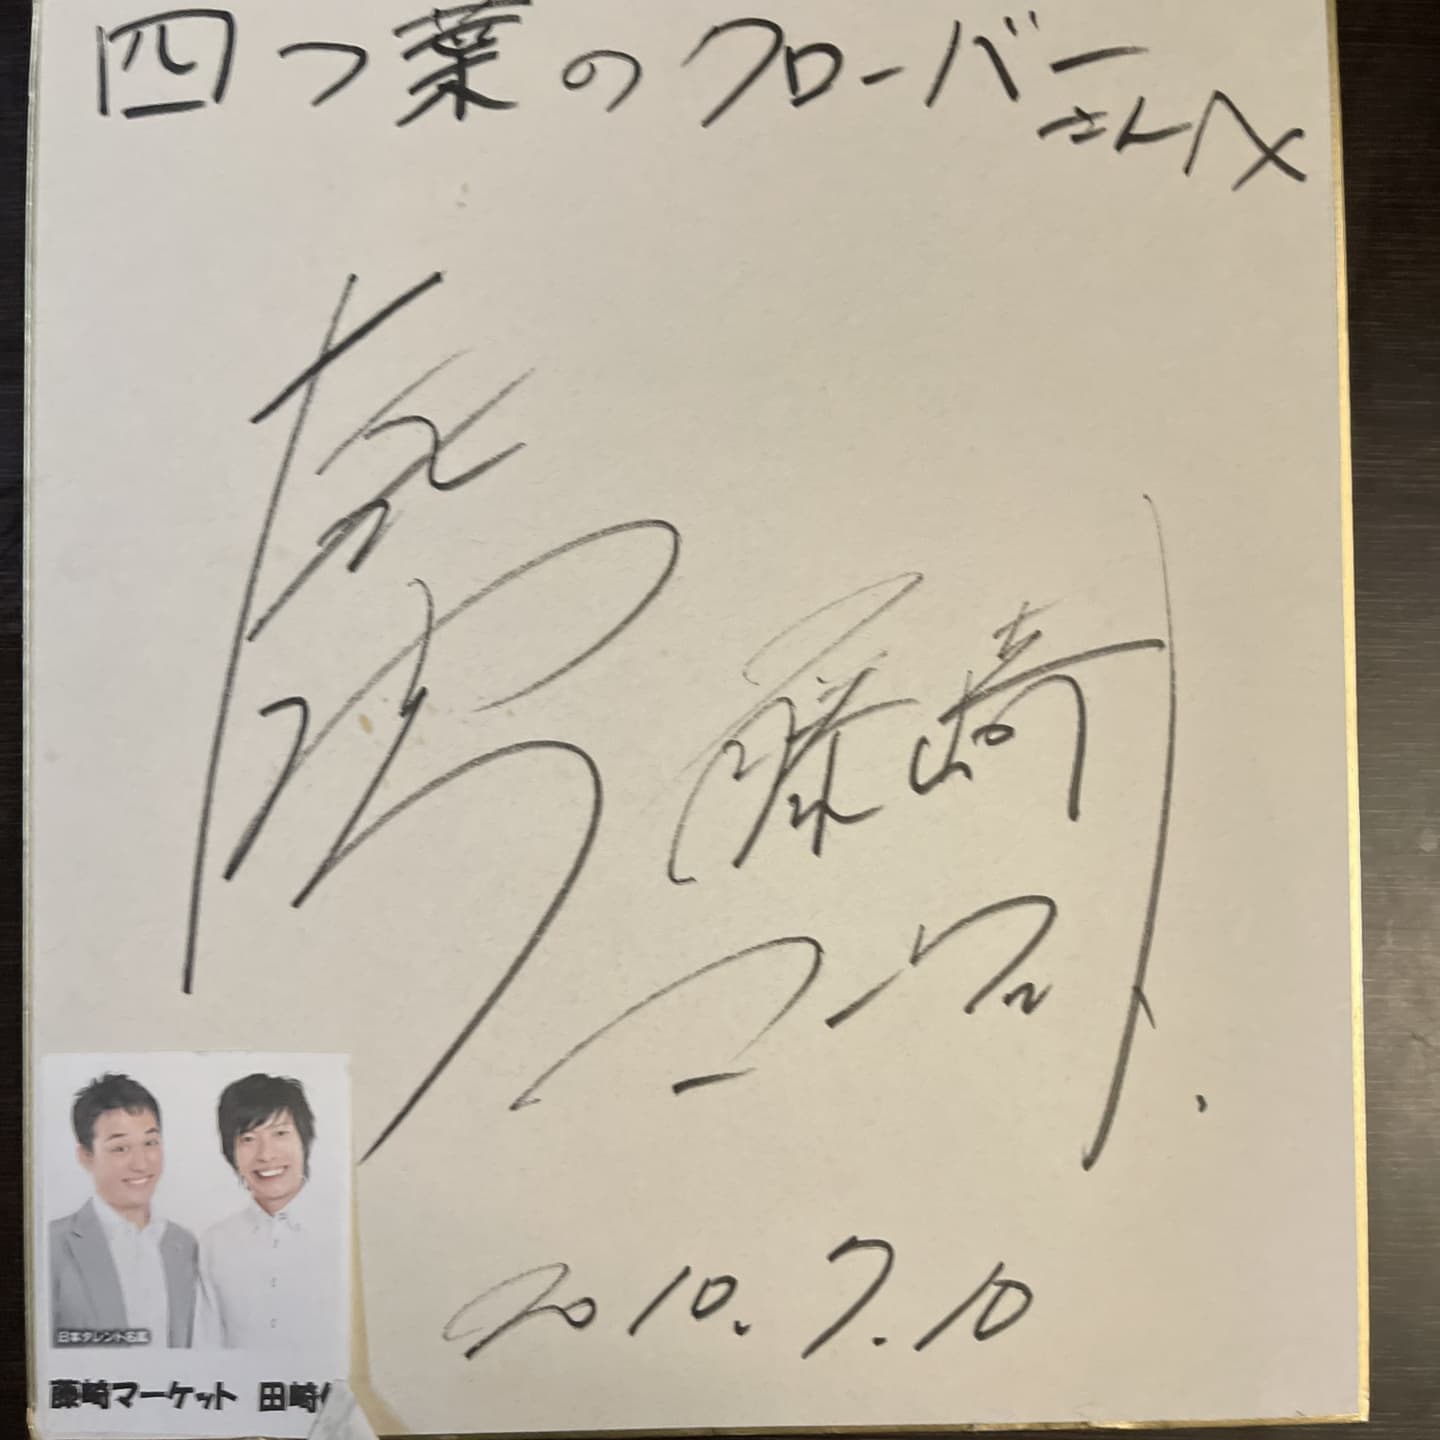 四つ葉のクローバー
さんへ
藤崎
マーケット
2010.7.10
日本タレント名鑑
藤崎マーケット 田崎